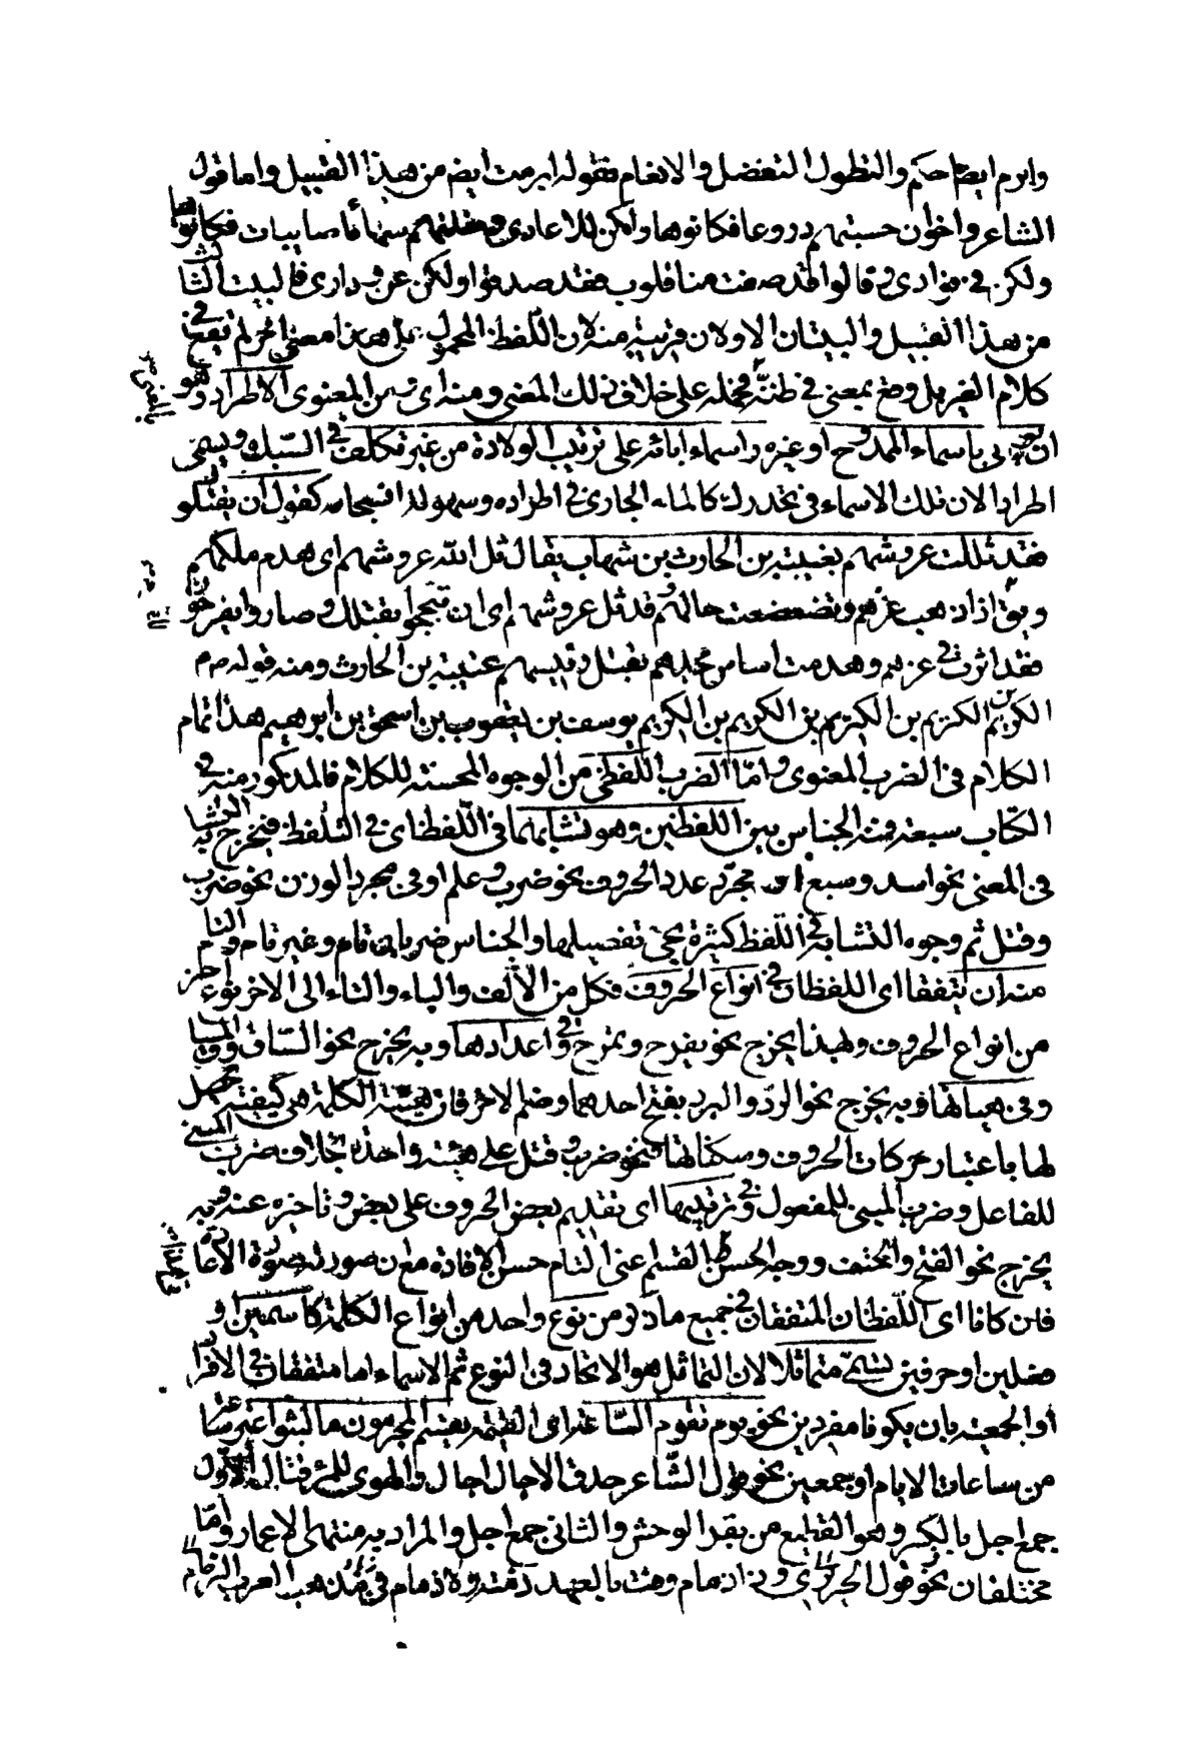 وابرم ايضا حكم والتطول التفضل والانعام فقوله ابرمت ايضا من هذا القبيل واما قول
الشاعر واخوان حسبتهم دروعا فكانوها ولكن للاعادي وخلتهم سهاما صايبات فكانوها
ولكن في فؤادي وقالوا قد صفت منا قلوب فقد صدقوا ولكن عن ودادي فالبيت الثالث
من هذا القبيل والبيتان الاولان قريبة منه لان اللفظ المحمول على معنى اخر لم يقع في
كلام الغير بل وقع بمعنى في ظنه فحمله على خلاف ذلك المعنى ومنه اى من المعنوى الاطراد وهو
ان يؤتى باسماء الممدوح او غيره واسماء ابائه على ترتيب الولادة من غير تكلف في السبك ويسمى
اطرادا لان تلك الاسماء في تحدرها كالماء الجارى في اطراده وسهولة انسجامه كقوله ان يقتلوك
فقد ثللت عروشهم بعتيبة بن الحارث بن شهاب يقال ثل الله عروشهم اى هدم ملكهم
ويق اذا ذهب عزهم وتضعضعت حالهم قد ثل عروشهم اى ان تبجحوا بقتلك وصاروا يفرحون
فقد اثرت في عزهم وهدمت اساس مجدهم بقتل رئيسهم عتيبة بن الحارث ومنه قوله صم
الكريم بن الكريم بن الكريم بن الكريم يوسف بن يعقوب بن اسحق بن ابرهيم هذا تمام
الكلام في الضرب المعنوى واما الضرب اللفظى من الوجوه المحسنة للكلام فالمذكور منه في
الكتاب سبعة فمنه الجناس بين اللفظين وهو تشابههما في اللفظ اى في التلفظ فيخرج به التشابه
في المعنى نحو اسد وسبع او مجرد عدد الحروف نحو ضرب وعلم او في مجرد الوزن نحو ضرب
وقتل ثم وجوه التشابه في اللفظ كثيرة يجئ تفصيلها والجناس ضربان تام وغير تام والتام
منه ان يتفقا اى اللفظان في انواع الحروف فكل من الالف والباء والتاء الى الاخر نوع اخر
من انواع الحروف ولهذا يخرج نحو يفرح ويمرح وفي اعدادها وبه يخرج نحو الساق والمساق
وفي هيأتها وبه يخرج نحو البرد والبرد بفتح احدهما وضم الاخر فان هيئة الكلمة هى كيفية تحصل
لها باعتبار حركات الحروف وسكناتها فنحو ضرب وقتل على هيئة واحدة بخلاف ضرب المبنى
للفاعل وضرب المبنى للمفعول وفي ترتيبها اى تقديم بعض الحروف على بعض وتاخيره عنه وبه
يخرج نحو الفتح والحتف ووجه الحسن في القسم اعنى التام حسن الافادة مع ان صورته صورة الاعادة
فان كانا اى اللفظان المتفقان في جميع ما ذكر من نوع واحد من انواع الكلمة كاسمين او
فعلين او حرفين يسمى متماثلا لان التماثل هو الاتحاد في النوع ثم الاسماء اما متفقان في الافراد
او الجمعية بان يكونا مفردين نحو يوم تقوم الساعة اى القيمة يقسم المجرمون ما لبثوا غير ساعة
من ساعات الايام او جمعين نحو قول الشاعر حدق الاجال اجال والهوى للمرء قتال الاول
جمع اجل بالكسر وهو القطيع من بقر الوحش والثانى جمع اجل والمراد به منتهى الاعمار واما
مختلفان نحو قول الحريرى وذى ذمام وفت بالعهد ذمته ولا ذمام له في مذهب العرب الذمام